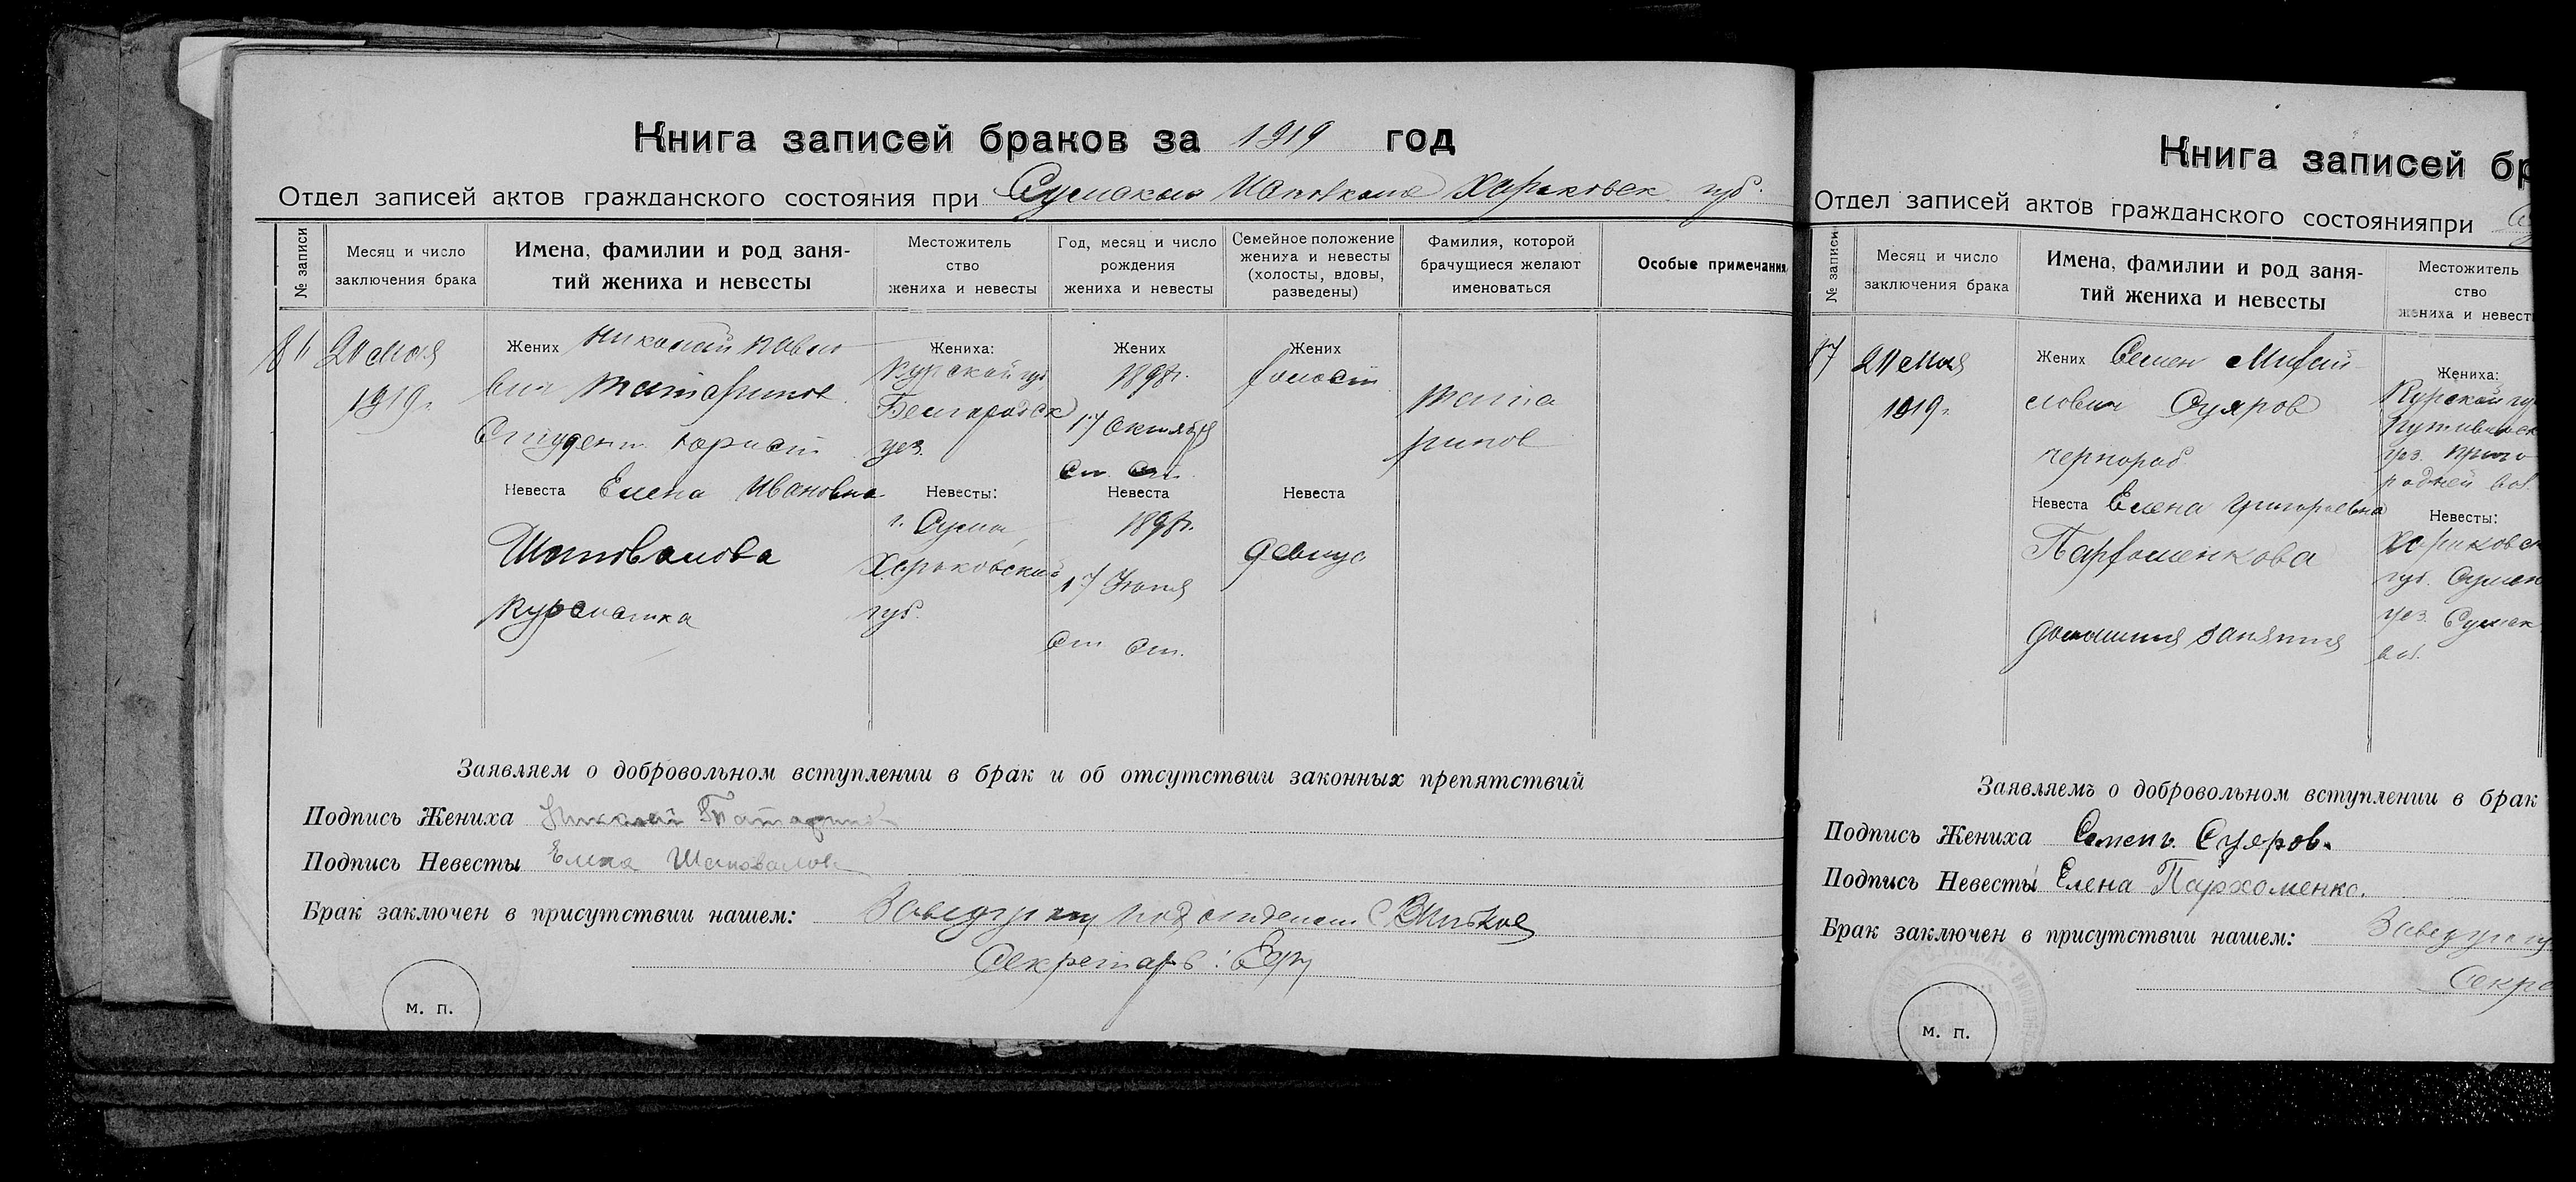 Книга записей браков за 1919 год
Отдел записей актов гражданского состояния при Сумском Исполкоме Харьковск. губ.
№ записи
Месяц и число
заключения брака
Имена, фамилии и род заня-
тий жениха и невесты
Местожитель
ство
жениха и невесты
Год, месяц и число
рождения
жениха и невесты
Семейное положение
жениха и невесты
(холосты, вдовы,
разведены)
Фамилия, которой
брачущиеся желают
именоваться
Особые примечания
мая
1919 г.
Жених Николай Павло
вич Татаринов
Студент юрист
Невеста Елена Ивановна
Шаповалова
Курсистка
Жениха:
Курской губ
Белгородск
уез.
Невесты:
г. Сумы,
Харьковской
губ.
Жених
1898 г.
17 Октября
ст. ст.
Невеста
1898 г.
17 Июня
ст. ст.
Жених
холост
Невеста
девица
Тата
ринов
Заявляем о добровольном вступлении в брак и об отсутствии законных препятствий
Подпись Жениха Николай Татаринов
Подпись Невесты Елена Шаповалова
Брак заключен в присутствии нашем: Заведующий подотделом
Секретарь:
м. п.
Книга записей бр
Отдел записей актов гражданского состоянияпри
№ записи
Месяц и число
заключения брака
Имена, фамилии и род заня-
тий жениха и невесты
Местожитель
ство
жениха и невест
мая
1919 г.
Жених Семен Михай
лович Суяров
чернораб.
Невеста Елена Григорьевна
Пархоменкова
домашния занятия
Жениха:
Курской гу
Путивльск
уез.
Невесты:
Харьковск
губ. Сумск
уез. Сумск
вол.
Заявляемъ о добровольном вступлении в брак
Подпись Жениха Семенъ Суяров.
Подпись Невесты Елена Пархоменко.
Брак заключен в присутствии нашем: Заведующ
Секре
м. п.